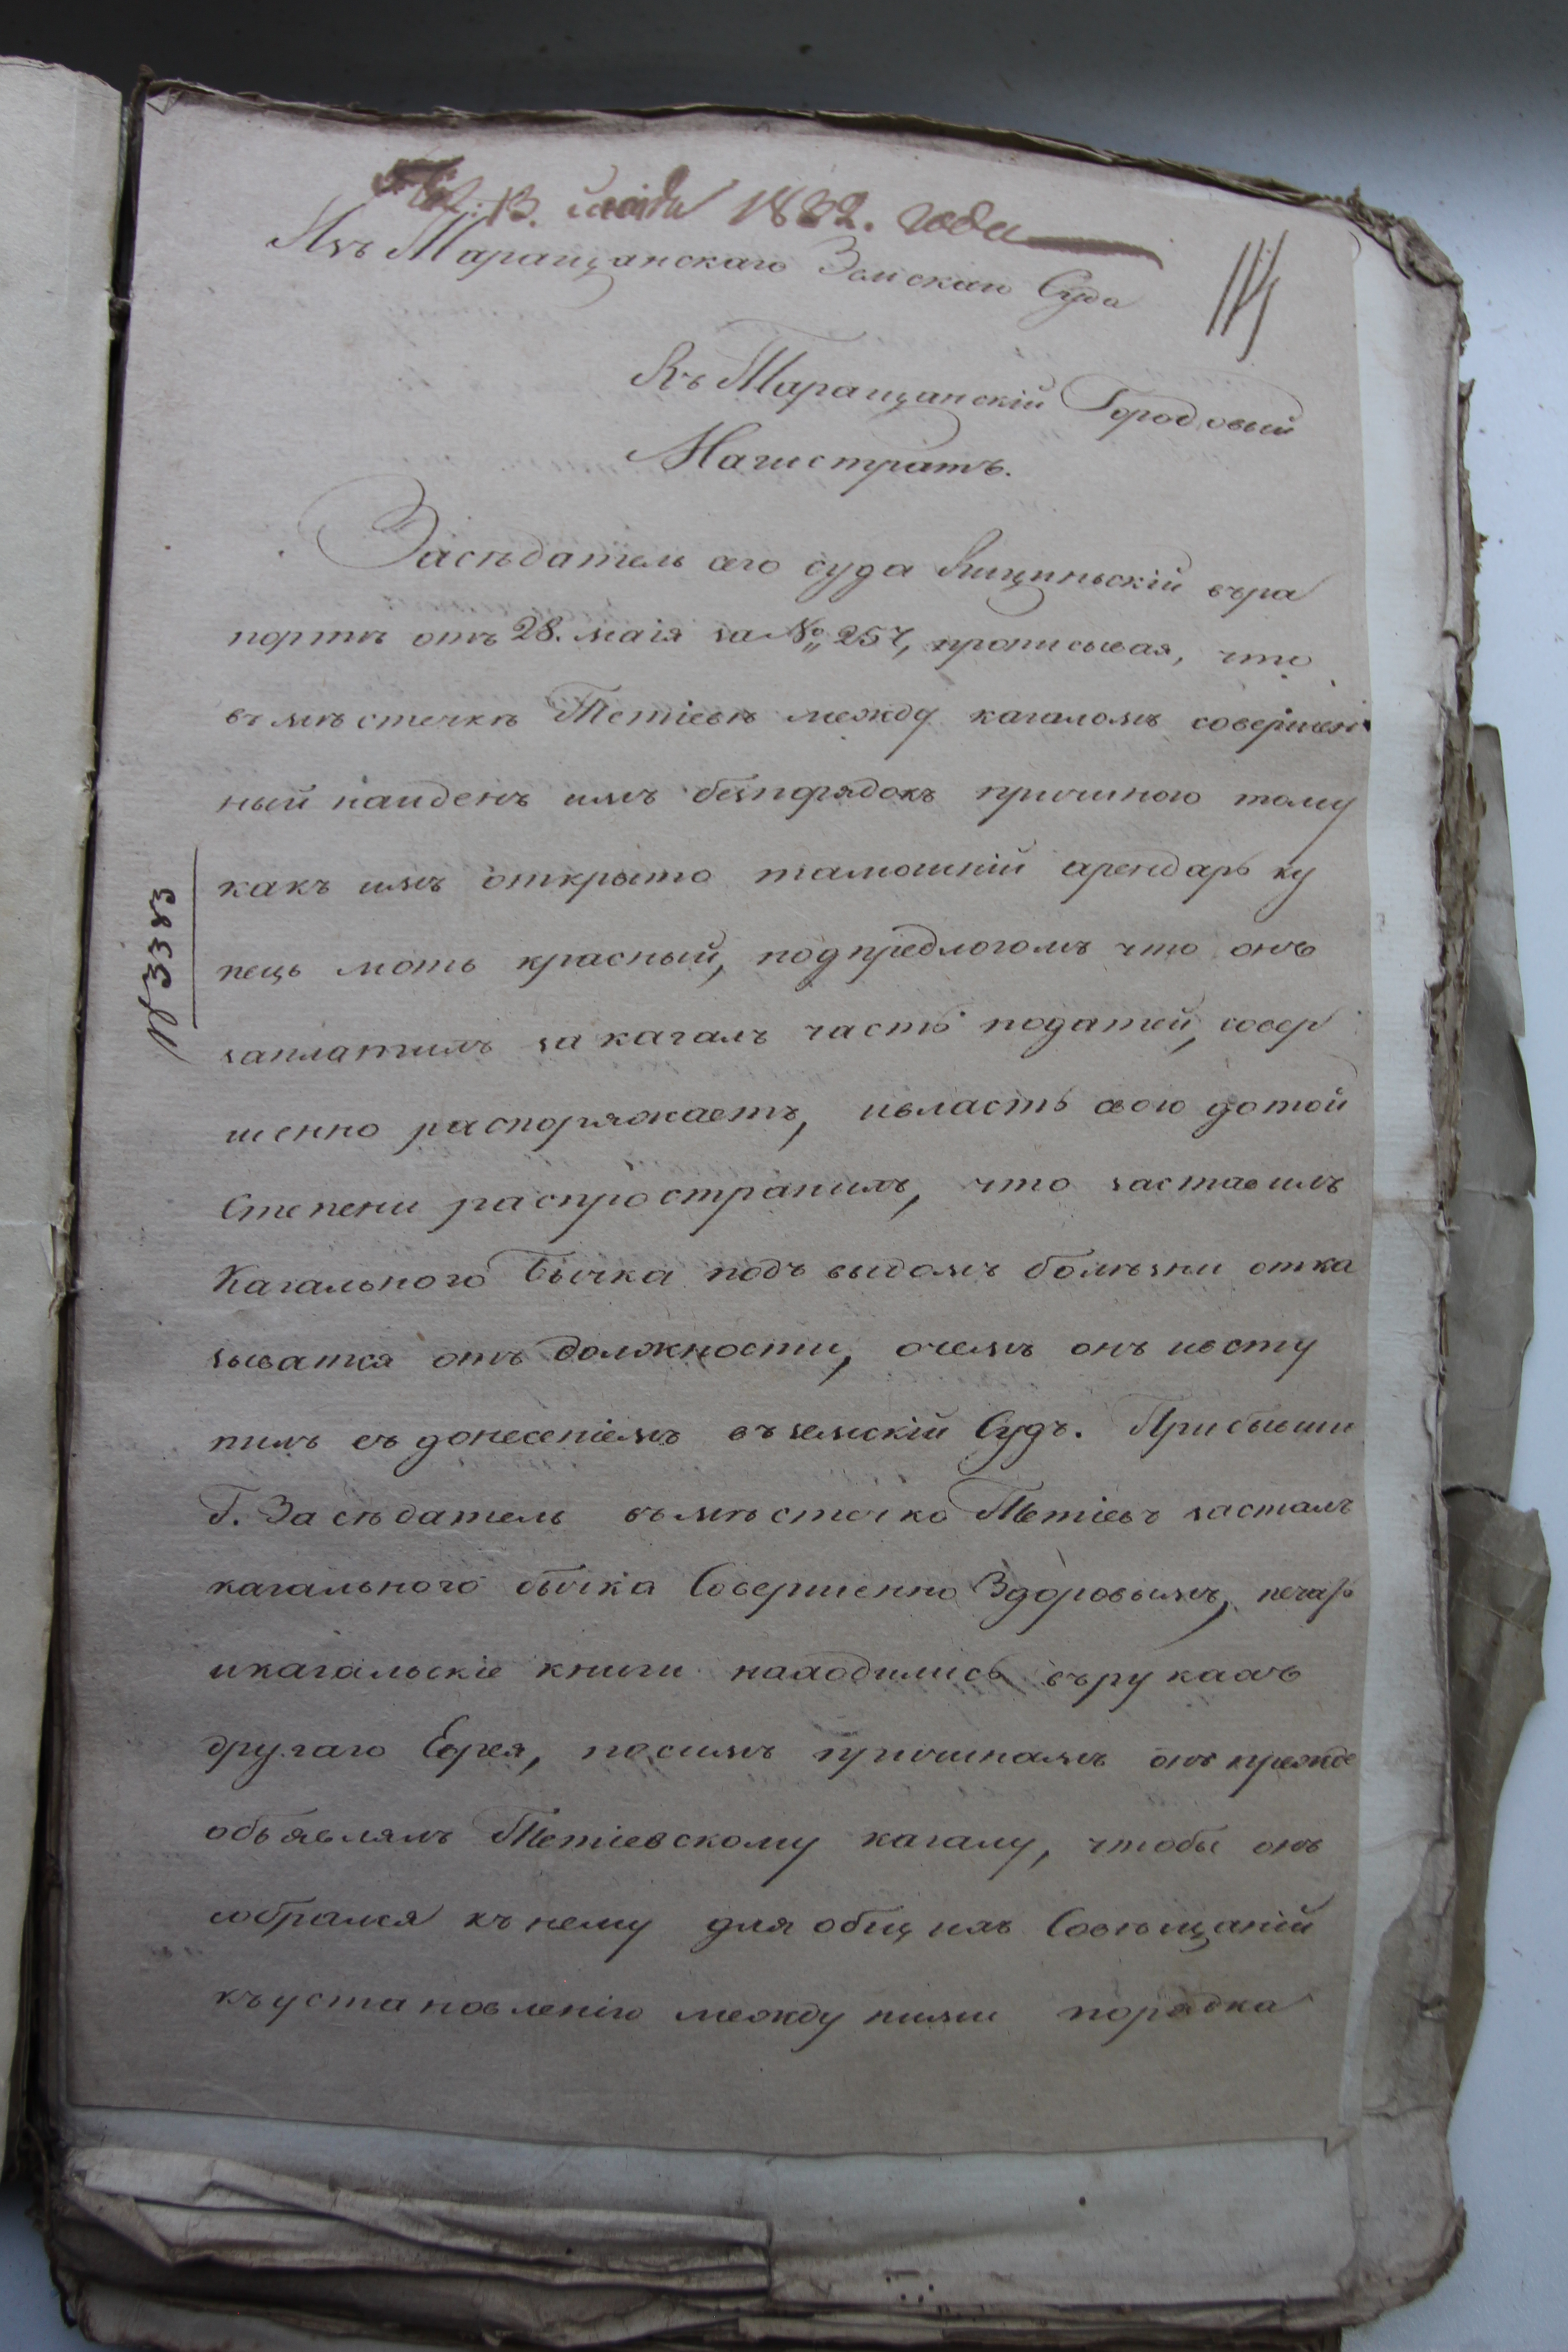 13. 1832. года
Изъ Таращанскаго Земскаго Суда
Въ Таращанскій Городовый
Магистратъ.
Засѣдатель сего суда въра
портѣ отъ 28. маія за № 257, прописывая, что
въ мѣстечкѣ Тетіевѣ между кагаломъ совершен
ный найденъ имъ безпорядокъ причиною тому
какъ имъ открыто тамошній арендарь ку
пець моть красный, подпредлогомъ что онъ
заплатилъ за кагалъ часть податей, совер
шенно распоряжаетъ, ивласть свою дотой
Степени распространилъ, что заставилъ
Кагального Бычка подъ выдомъ болѣзни отка
зыватся отъ должности, очемъ онъ ивсту
пилъ съ донесеніемъ въ земскій Судъ. Прибывши
Г. Засѣдатель въ мѣстечко Тетіевъ засталъ
кагального бычка Совершенно Здоровымъ, печать
икагальскіе книги находились въ рукахъ
другаго Еврея, посимъ причинамъ онъ прежде
объявлялъ Тетіевскому кагалу, чтобы онъ
собрался къ нему для общихъ Совѣщаній
къ установленію между ними порядка
№ 3383